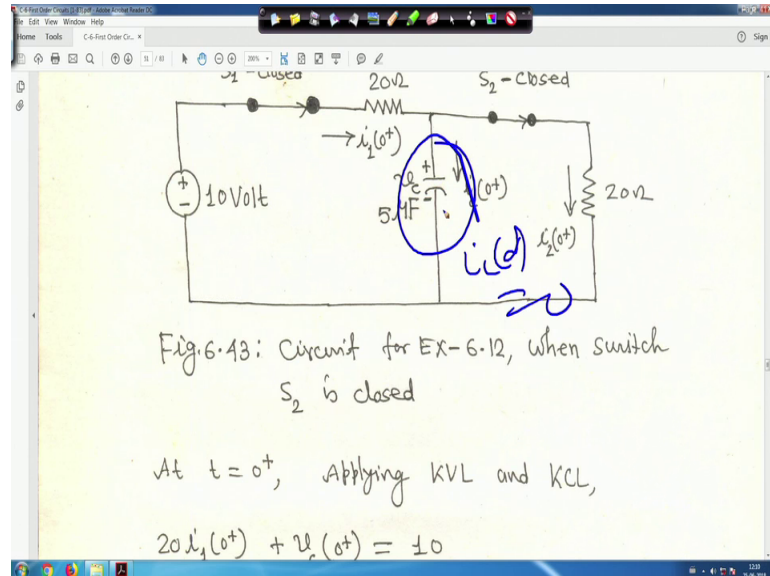 C-6-First Order Circuits (1-83).pdf - Adobe Acrobat Reader DC
File Edit View Window Help
Home Tools C-6-First Order Cir... × Sign
51 / 83 200%
S₁-Closed 20Ω S₂-Closed
i₁(0⁺)
+
10 Volt
-
+
υc
i(0⁺)
5μF -
20Ω
i₂(0⁺)
Fig.6.43: Circuit for EX-6.12, when switch
S₂ is closed
At t = 0⁺, Applying KVL and KCL,
20i₁(0⁺) + υc(0⁺) = 10
12:10